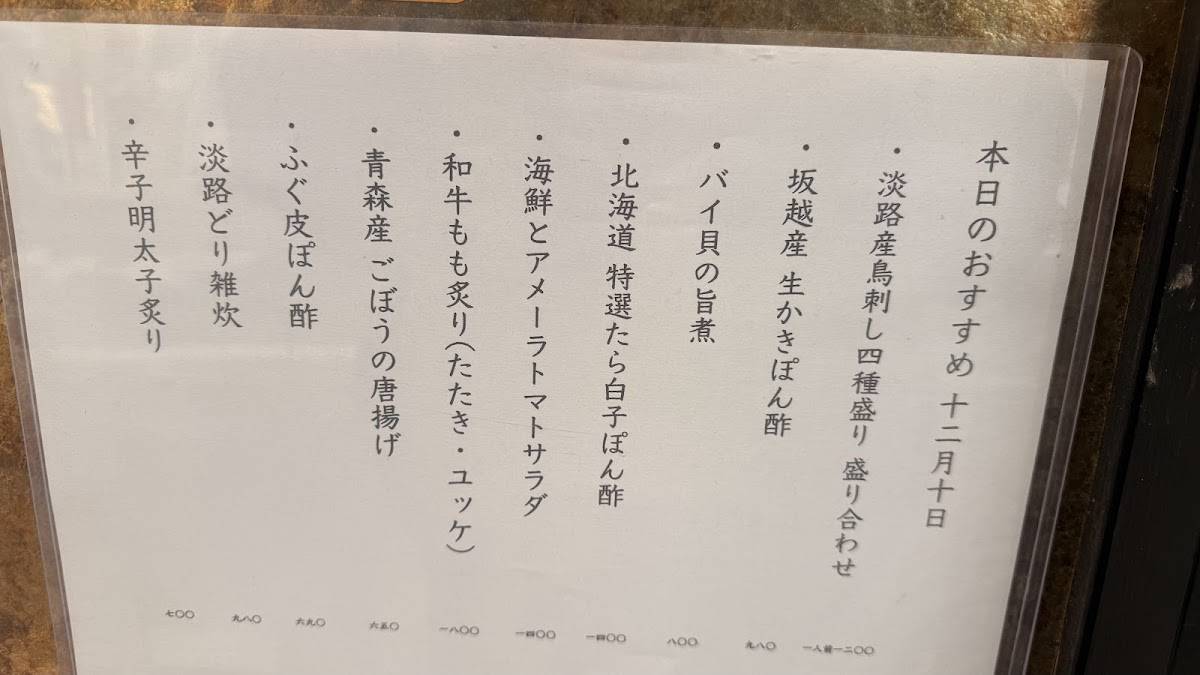 本日のおすすめ 十二月十日
・淡路産鳥刺し四種盛り 盛り合わせ
一人前一二〇〇
・坂越産 生かきぽん酢
九八〇
・バイ貝の旨煮
八〇〇
・北海道 特選たら白子ぽん酢
一四〇〇
・海鮮とアメーラトマトサラダ
一四〇〇
・和牛もも炙り(たたき・ユッケ)
一八〇〇
・青森産 ごぼうの唐揚げ
六五〇
・ふぐ皮ぽん酢
六九〇
・淡路どり雑炊
九八〇
・辛子明太子炙り
七〇〇